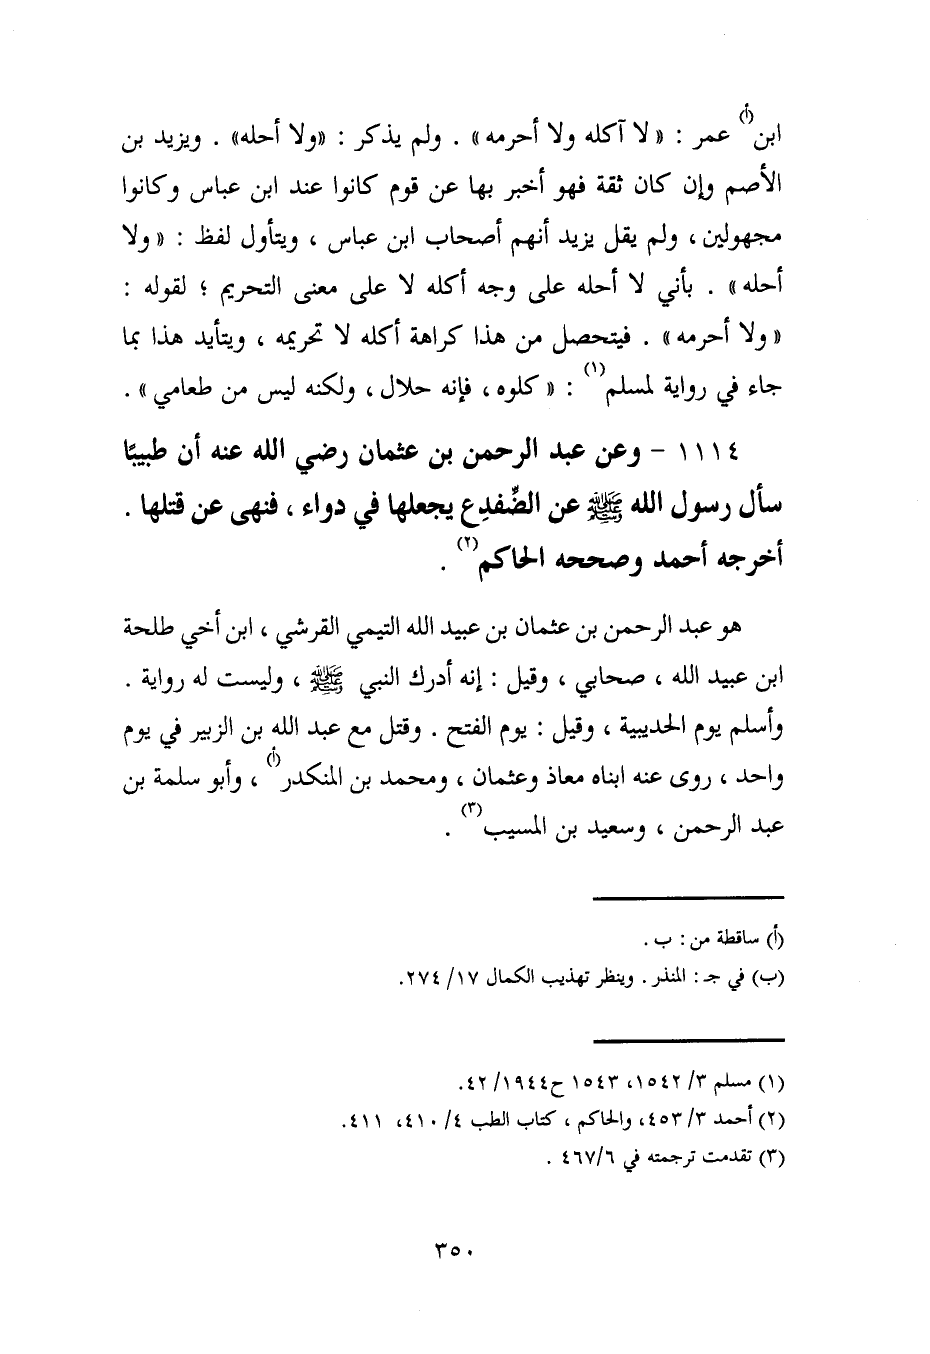 ابن(أ) عمر : «لا آكله ولا أحرمه» . ولم يذكر : «ولا أحله» . ويزيد بن
الأصم وإن كان ثقة فهو أخبر بها عن قوم كانوا عند ابن عباس وكانوا
مجهولين، ولم يقل يزيد أنهم أصحاب ابن عباس ، ويتأول لفظ : «ولا
أحله» . بأني لا أحله على وجه أكله لا على معنى التحريم ؛ لقوله :
«ولا أحرمه» . فيتحصل من هذا كراهة أكله لا تحريمه ، ويتأيد هذا بما
جاء في رواية لمسلم(١) : «كلوه، فإنه حلال، ولكنه ليس من طعامي» .
١١١٤ - وعن عبد الرحمن بن عثمان رضي الله عنه أن طبيبًا
سأل رسول الله ﷺ عن الضِّفدِع يجعلها في دواء ، فنهى عن قتلها .
أخرجه أحمد وصححه الحاكم(٢) .
هو عبد الرحمن بن عثمان بن عبيد الله التيمي القرشي ، ابن أخي طلحة
ابن عبيد الله ، صحابي ، وقيل : إنه أدرك النبي ﷺ ، وليست له رواية .
وأسلم يوم الحديبية ، وقيل : يوم الفتح . وقتل مع عبد الله بن الزبير في يوم
واحد ، روى عنه ابناه معاذ وعثمان ، ومحمد بن المنكدر(أ) ، وأبو سلمة بن
عبد الرحمن ، وسعيد بن المسيب(٣) .
(أ) ساقطة من : ب .
(ب) في جـ : المنذر . وينظر تهذيب الكمال ١٧/ ٢٧٤.
(١) مسلم ٣/ ١٥٤٢، ١٥٤٣ ح١٩٤٤/ ٤٢.
(٢) أحمد ٣/ ٤٥٣، والحاكم ، كتاب الطب ٤/ ٤١٠، ٤١١.
(٣) تقدمت ترجمته في ٤٦٧/٦ .
٣٥٠